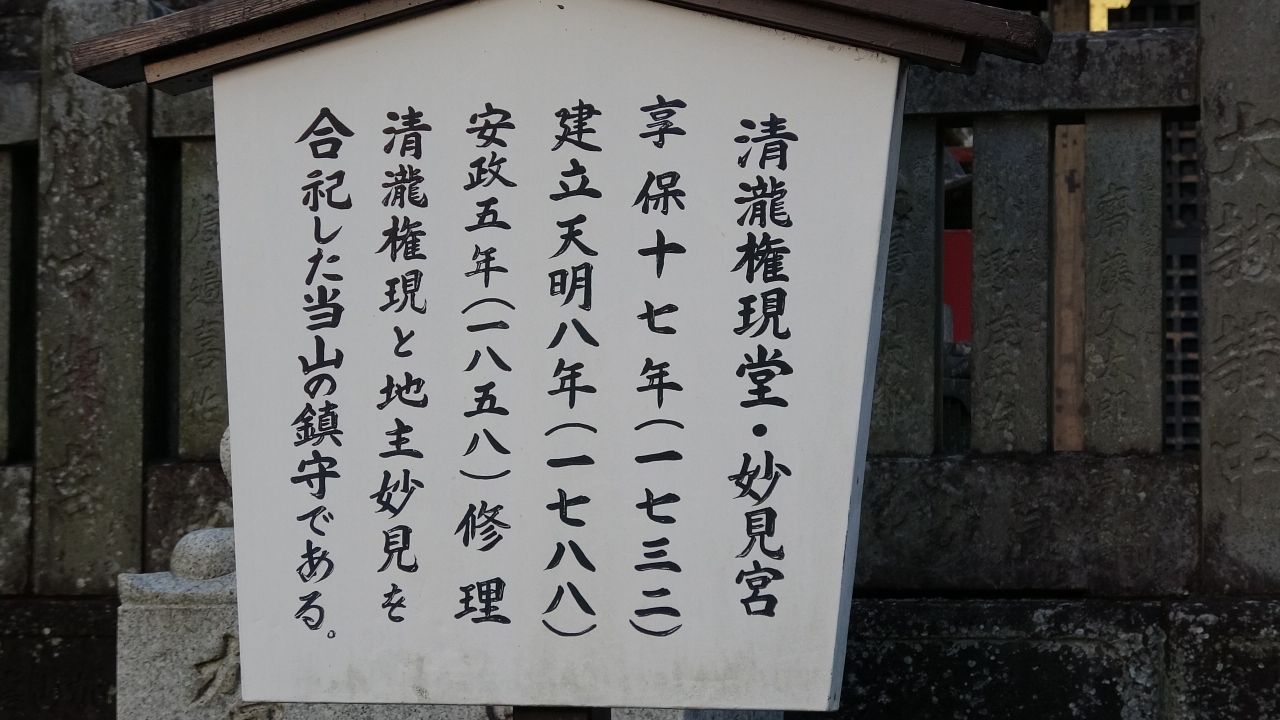 清瀧権現堂・妙見宮
享保十七年（一七三二）
建立天明八年（一七八八）
安政五年（一八五八）修理
清瀧権現と地主妙見を
合祀した当山の鎮守である。